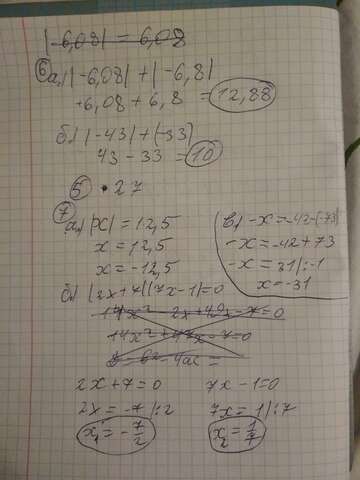 |-6,08| = 6,08
⑥ а.) |-6,08| + |-6,8|
+6,08 + 6,8 = 12,88
б.) |-43| + (-33)
43 - 33 = 10
⑤ • 27
⑦
а.) |x| = 12,5
x = 12,5
x = -12,5
в.) -x = -42-(-73)
-x = -42 + 73
-x = 31 |:-1
x = -31
б.) (2x+7)(7x-1)=0
14x² - 2x + 49x - 7 = 0
14x² + 47x - 7 = 0
2x + 7 = 0
2x = -7 |:2
x₁ = -7/2
7x - 1 = 0
7x = 1 |:7
x₂ = 1/7